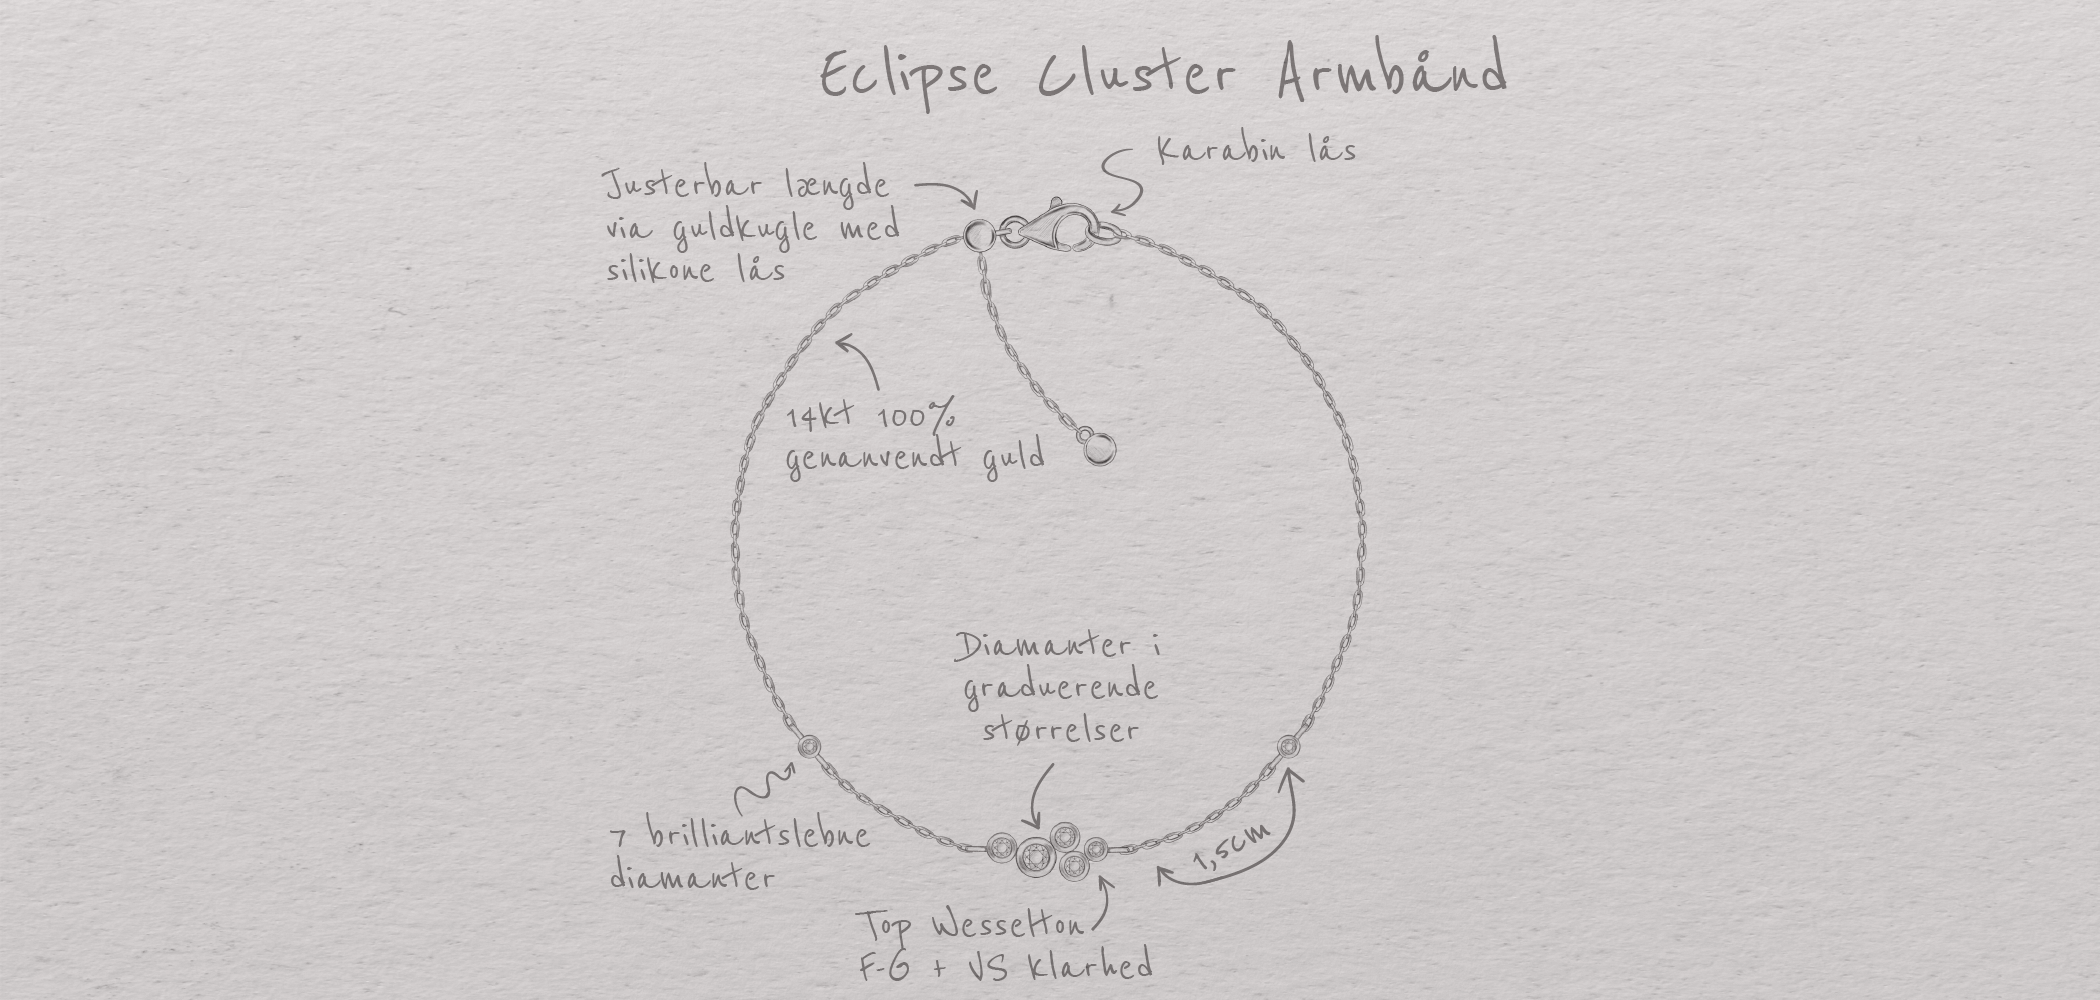 Eclipse Cluster Armbånd
Karabin lås
Justerbar længde
via guldkugle med
silikone lås
14kt 100%
genanvendt guld
Diamanter i
graduerende
størrelser
7 brilliantslebne
diamanter
1,5cm
Top Wesselton
F-G + VS Klarhed